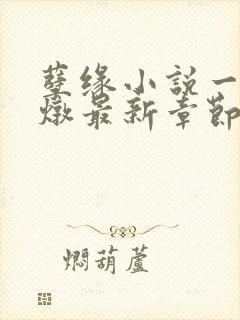 孽缘小說一
燉最新章節
燜葫蘆